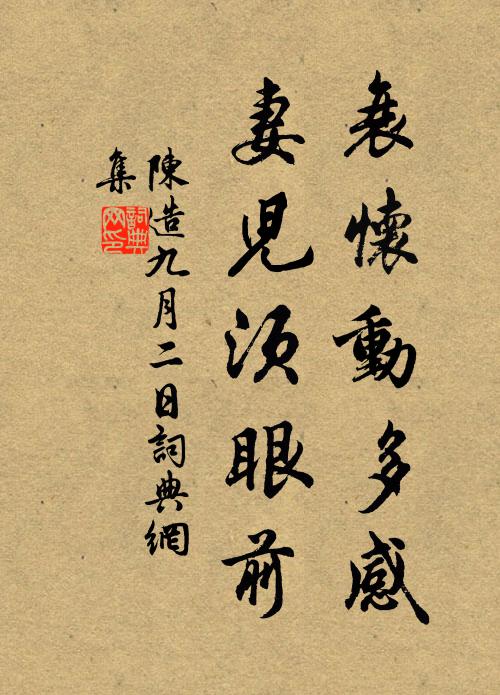 衰懷動多感
妻兒須眼前
陳造九月二日詞典網
集
詞典網印